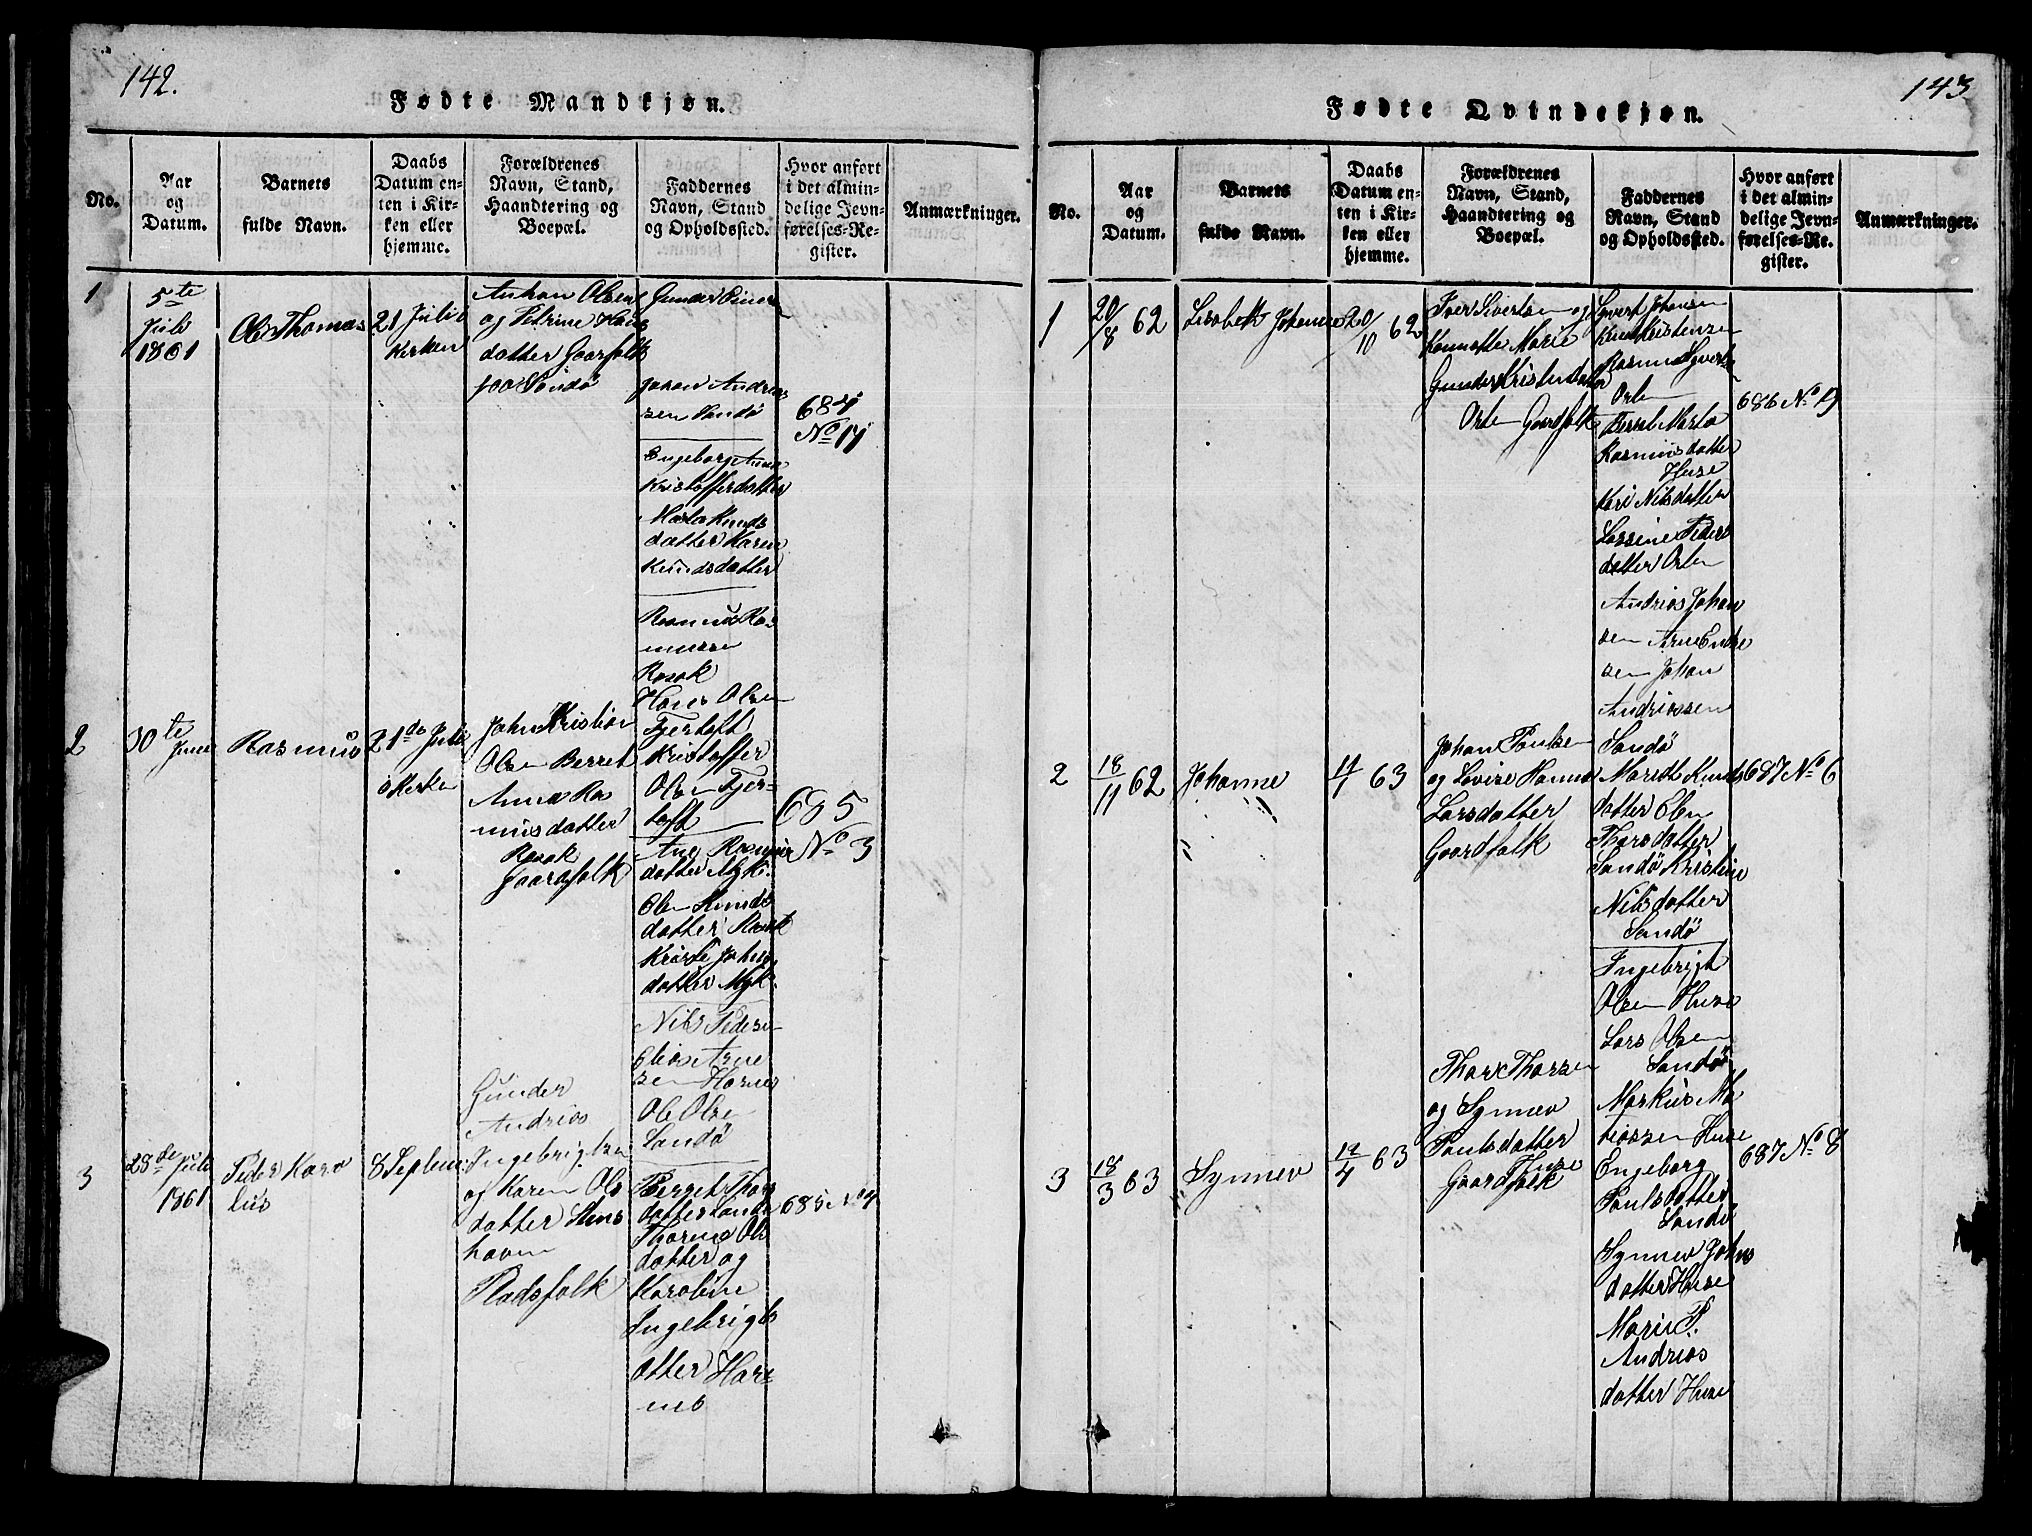 142.
Fødte Mandkjøn.
No.
Aar
og
Datum.
Barnets
fulde Navn.
Daabs
Datum en-
ten i Kir-
ken eller
hjemme.
Forældrenes
Navn, Stand,
Haandtering og
Boepæl.
Faddernes
Navn, Stand
og Opholdssted.
Hvor anført
i det almin-
delige Jevn-
førelses-Re-
gister.
Anmærkninger.
1
5te
Juli
1861
Ole Thomas
21 Juli i
Kirken
Anton Olsen
og Petrine Hans
datter Gaardfolk
paa Sandø
Gunder
Johan Andreas
sen Sandø
Engeborg Anne
Kristofferdatter
Marta Knuds
datter Karen
Knudsdatter
Rasmus Ras
mussen
Rosok
684
No 17
2
30te
Juni
Rasmus
21de Juli
i Kirken
John Kristian
Olsen Berret
Anna Ras
musdatter
Rosok
Gaardfolk
Hans Olsen
Fjertoft
Kristoffer
Olsen Fjer-
toft
Ane Rasmus
datter Myk.
Olen Knuds
datter Rosok
Kriste Johns
datter Myk.
685
No 3
3
28de Juli
1861
Peder Karo
lius
8 Septem.
Gunder
Andrias
Ingebrigtsen
og Karen Ols
datter Stens
havn
Pladsfolk
Nils Pedersen
Elias Arne
sen Harnes
Ole Olsen
Sandø
Berget Thors
datter Sandø
Thorine Ols
datter og
Karoline
Ingebrigts
datter Har-
nes
685 No 4
143
Fødte Qvindekjøn.
No.
Aar
og
Datum.
Barnets
fulde Navn.
Daabs
Datum en-
ten i Kir-
ken eller
hjemme.
Forældrenes
Navn, Stand,
Haandtering og
Boepæl.
Faddernes
Navn, Stand
og Opholdssted.
Hvor anført
i det almin-
delige Jevn-
førelses-Re-
gister.
Anmærkninger.
1
20/8 62
Lisabeth Johanne
20/10 62
Iver Sivertsen og
Marie
Gunderkristendatter
Orten Gaardfolk
Syvert Johansen
Knut Kristensen
Rasmus Syverts
Orten
Berret Marta
Rasmusdatter
Huse
Kari Nilsdatter
Lassine Peders
datter Orten
686 No 19
2
18/11 62
Johanne
11/1 63
Johan Poulsen
og Lovise Hanna
Larsdatter
Gaardfolk
Andrias Johan
sen Arne Endre
sen Johan
Andriassen
Sandø
Marith Knuds
datter Olen
Thorsdatter
Sandø Kristine
Nilsdatter
Sandø
687 No 6
3
18/3 63
Synnev
12/4 63
Thore Thorsen
og Synnev
Poulsdatter
Huse
Gaardfolk
Ingebrigt
Olsen Huse
Lars Olsen
Sandø
Markus Ma
tiassen Huse
Engeborg
Poulsdatter
Sandø
Synnev Johns
datter Huse
Marie P.
Andrias
datter Huse
687 No 8